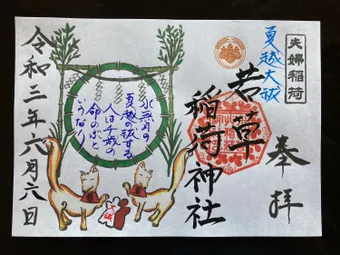 夫婦稲荷
夏越大祓
奉拝
若草
稲荷神社
水無月の
夏越の祓する
人は千歳の
命のぶと
いうなり
大祓
令和二年六月六日